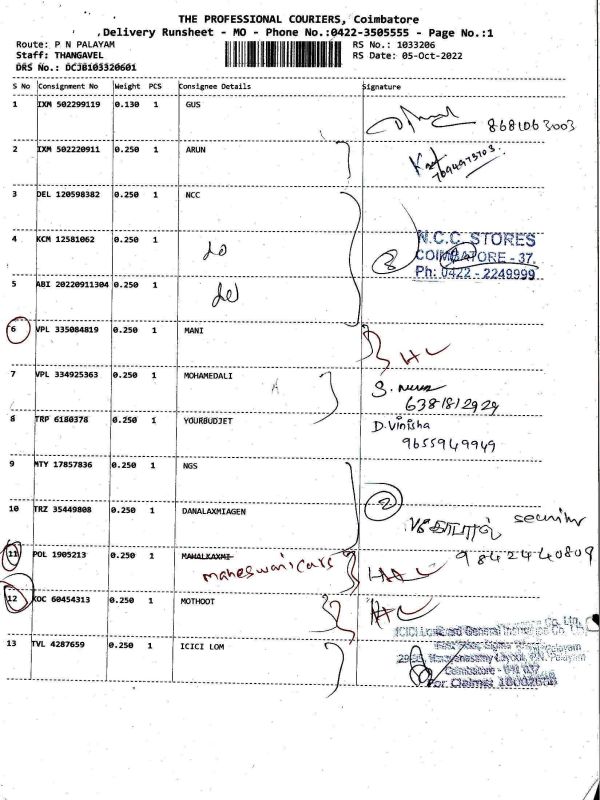 THE PROFESSIONAL COURIERS, Coimbatore
Delivery Runsheet - MO - Phone No.:0422-3505555 - Page No.:1
Route: P N PALAYAM
RS No.: 1033206
Staff: THANGAVEL
RS Date: 05-Oct-2022
DRS No.: DCJB103320601
S No Consignment No Weight PCS Consignee Details Signature
1 IXM 502299119 0.130 1 GUS
8681063003
2 IXM 502220911 0.250 1 ARUN
7694973703
3 DEL 120598382 0.250 1 NCC
4 KCM 12581062 0.250 1 do
3
N.C.C. STORES
COIMBATORE - 37.
Ph: 0422 - 2249999
5 ABI 20220911304 0.250 1 do
6 VPL 335084819 0.250 1 MANI
7 VPL 334925363 0.250 1 MOHAMEDALI
6381812929
8 TRP 6180378 0.250 1 YOURBUDJET
D. Vinisha
9655949949
9 MTY 17857836 0.250 1 NGS
2
10 TRZ 35449808 0.250 1 DANALAXMIAGEN
security
9842440809
11 POL 1905213 0.250 1 MAHALKAXMI
maheswari cars
12 KOC 60454313 0.250 1 MOTHOOT
13 TVL 4287659 0.250 1 ICICI LOM
ICICI Lombard General Insurance Co. Ltd.
Coimbatore - 641 037